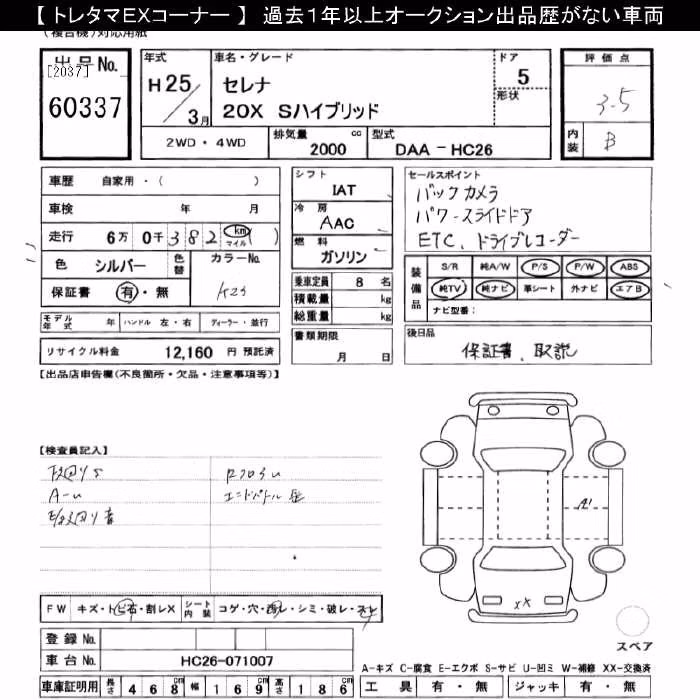 【 トレタマEXコーナー 】 過去１年以上オークション出品歴がない車両
(複合機)対応用紙
出品No.
[2037]
60337
年式
H25/3月
車名・グレード
セレナ
20X Sハイブリッド
ドア
5
形状
評価点
3.5
内装
B
2WD ・ 4WD
排気量 cc
2000
型式
DAA - HC26
車歴 自家用・( )
車検 年 月
走行 6万 0千 382 km マイル ( )
色 シルバー 色替
カラーNo.
K23
保証書 有・無
モデル年式 年 ハンドル 左・右 ディーラー・並行
リサイクル料金 12,160 円 預託済
シフト
IAT
冷房
AAC
燃料
ガソリン
乗車定員 8 名
積載量 kg
総重量 kg
書類期限
月 日
セールスポイント
バックカメラ
パワースライドドア
ETC、ドライブレコーダー
装備品
S/R 純A/W P/S P/W ABS
純TV 純ナビ 革シート 外ナビ エアB
ナビ型番：
後日品
保証書、取説
【出品店申告欄(不良箇所・欠品・注意事項等)】
【検査員記入】
A-u
A1
XX
FW キズ・トビ石・割レX
シート内装 コゲ・穴・切レ・シミ・破レ・スレ
登録No.
車台No. HC26-071007
スペア
A-キズ C-腐食 E-エクボ S-サビ U-凹ミ W-補修 XX-交換済
車庫証明用 長さ 468cm 幅 169cm 高さ 186cm
工具 有・無 ジャッキ 有・無